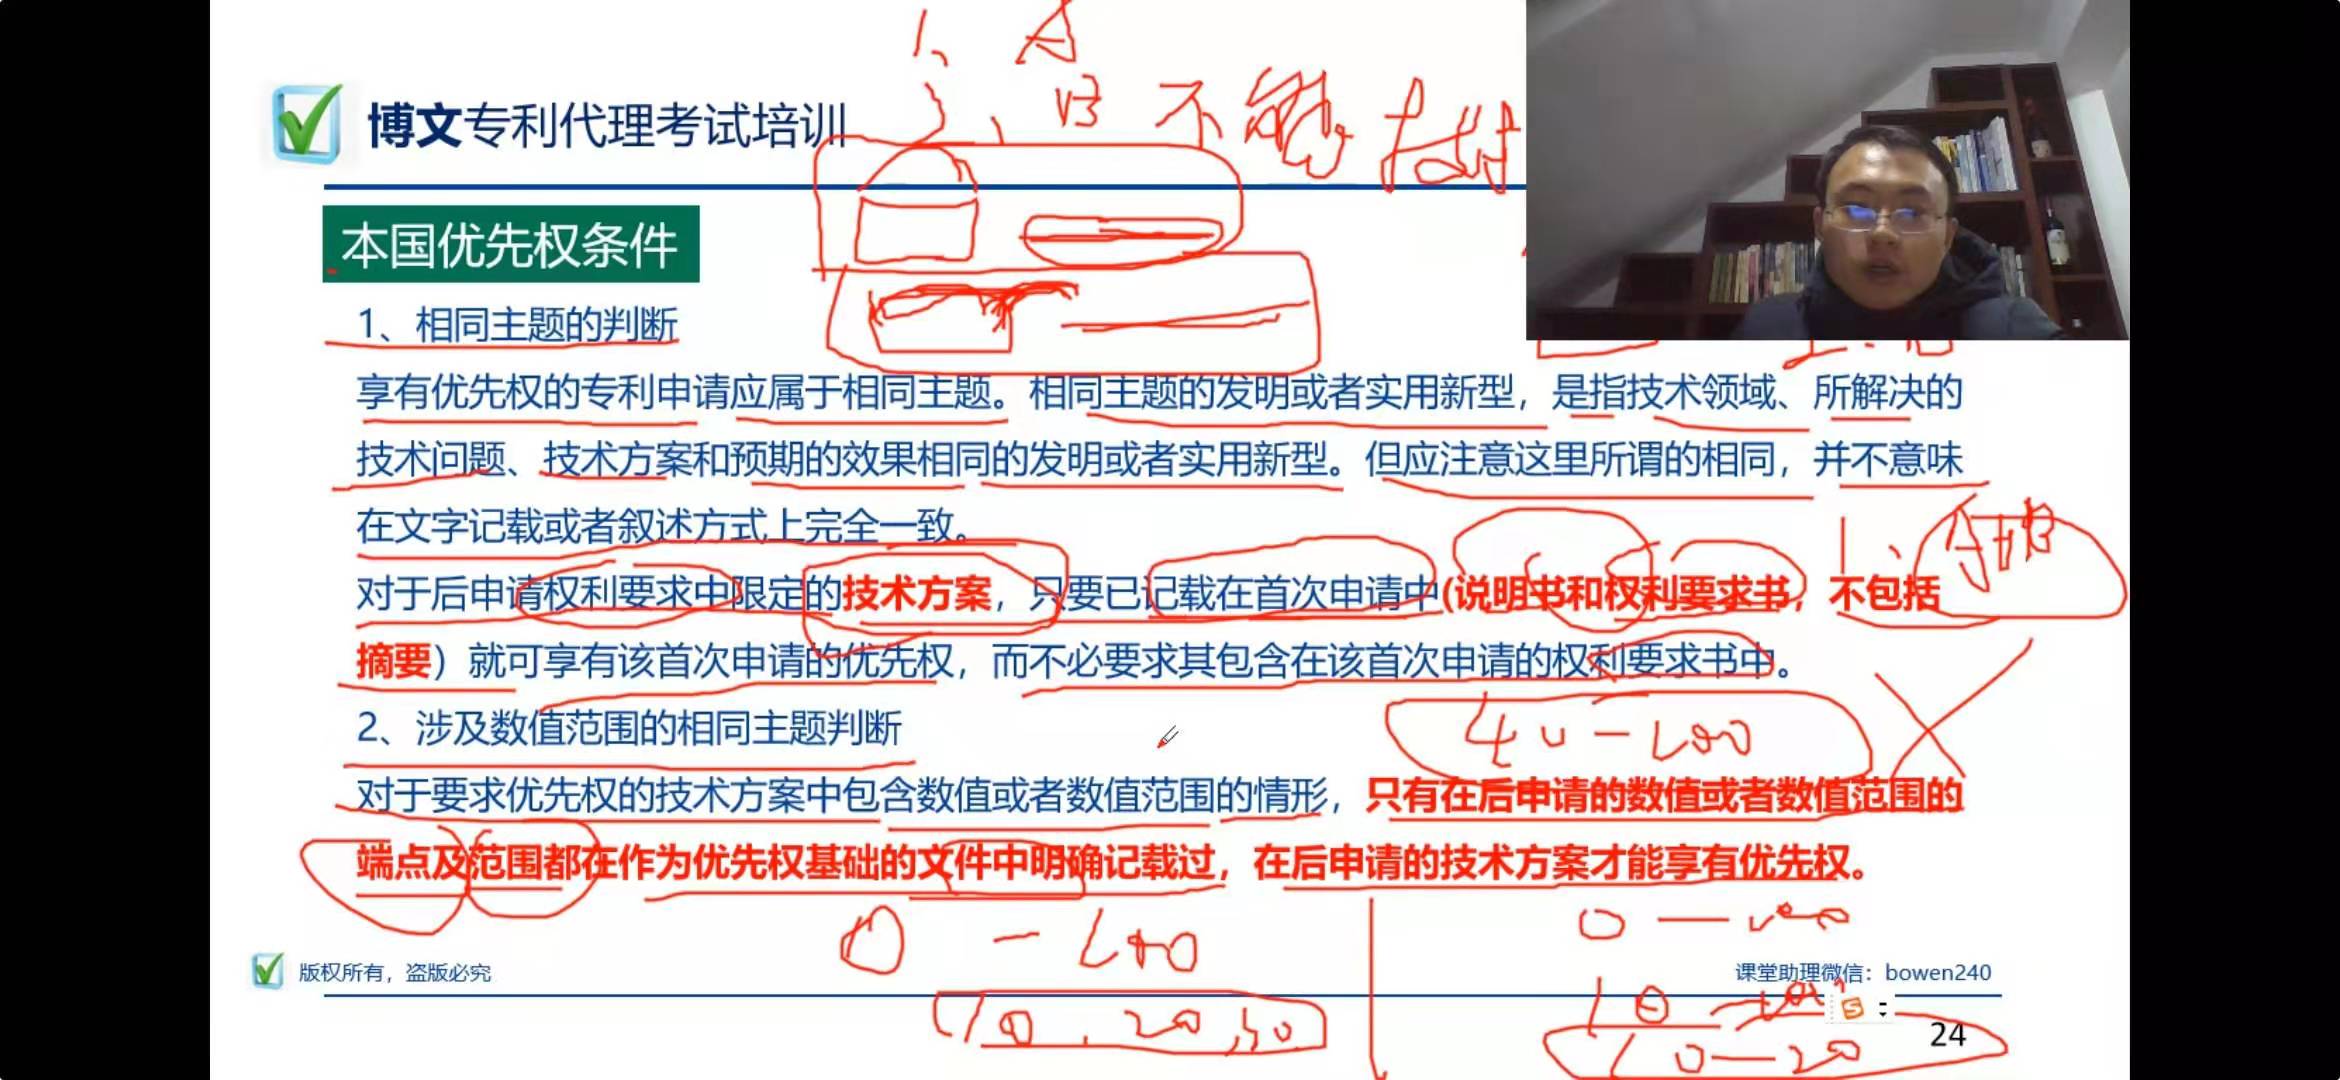 1、A
2、B 不能
博文专利代理考试培训
本国优先权条件
1、相同主题的判断
享有优先权的专利申请应属于相同主题。相同主题的发明或者实用新型，是指技术领域、所解决的
技术问题、技术方案和预期的效果相同的发明或者实用新型。但应注意这里所谓的相同，并不意味
在文字记载或者叙述方式上完全一致。
对于后申请权利要求中限定的技术方案，只要已记载在首次申请中(说明书和权利要求书，不包括
摘要）就可享有该首次申请的优先权，而不必要求其包含在该首次申请的权利要求书中。
2、涉及数值范围的相同主题判断
40-100
对于要求优先权的技术方案中包含数值或者数值范围的情形，只有在后申请的数值或者数值范围的
端点及范围都在作为优先权基础的文件中明确记载过，在后申请的技术方案才能享有优先权。
0-100
版权所有，盗版必究
课堂助理微信：bowen240
10-20
24